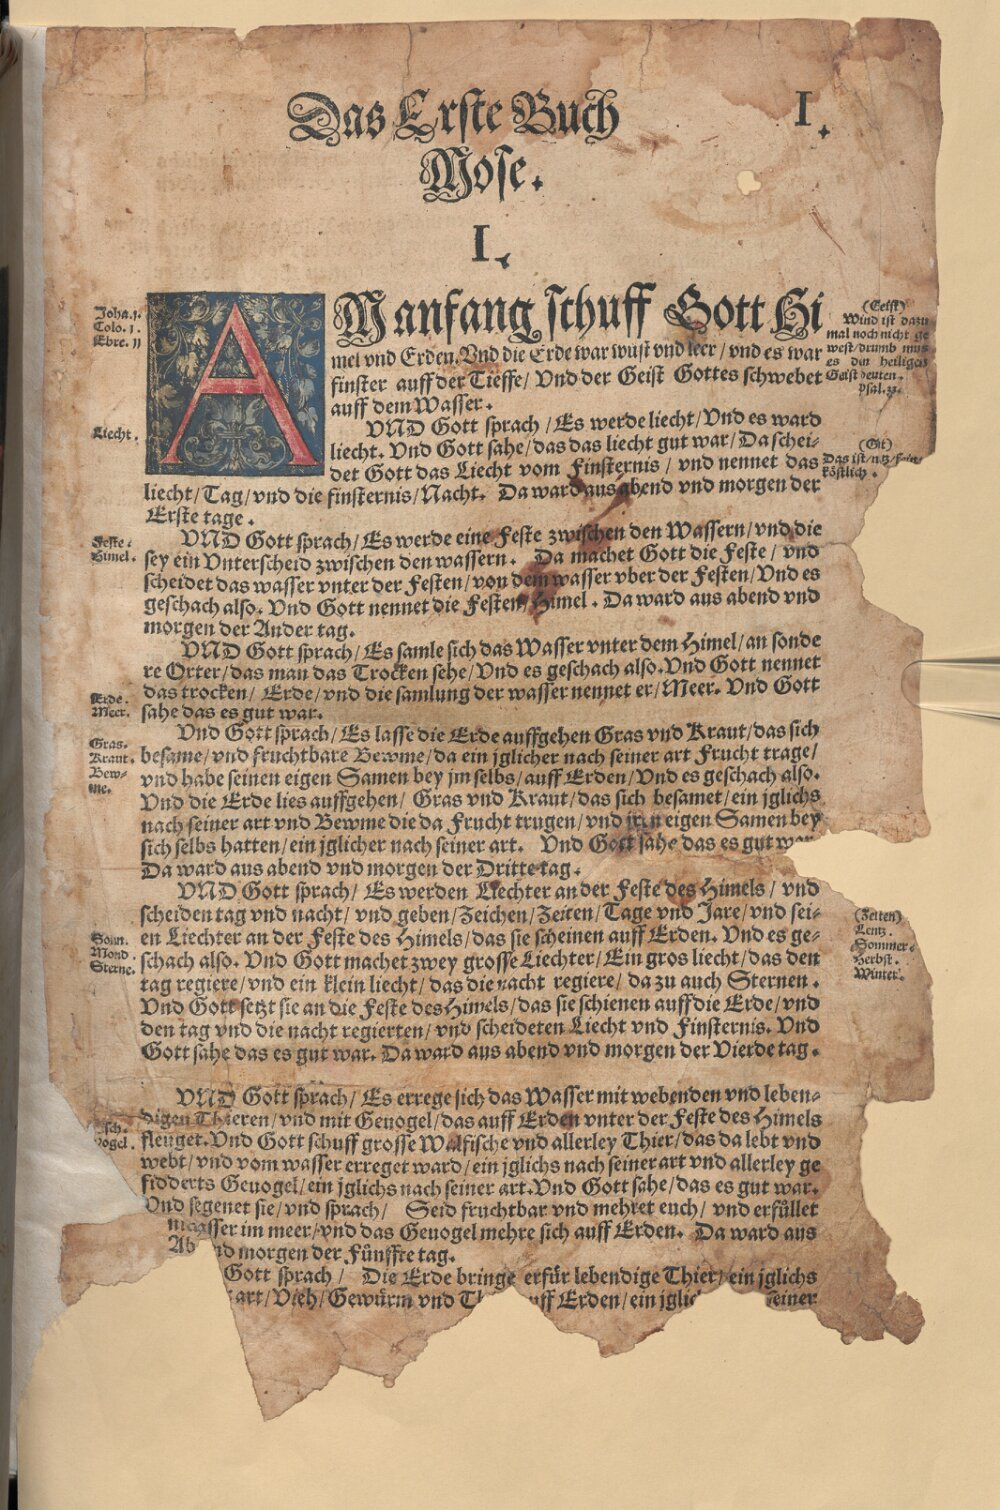 Das Erste Buch
I.
Mose.
I.
AM anfang schuff Gott Hi
mel vnd Erden. Vnd die Erde war wüst vnd leer / vnd es war
finster auff der Tieffe / Vnd der Geist Gottes schwebet
auff dem Wasser.
VND Gott sprach / Es werde liecht / Vnd es ward
liecht. Vnd Gott sahe / das das liecht gut war / Da schei-
det Gott das Liecht vom Finsternis / vnd nennet das
liecht / Tag / vnd die finsternis / Nacht. Da ward aus abend vnd morgen der
Erste tage.
VND Gott sprach / Es werde eine Feste zwischen den Wassern / vnd die
sey ein Vnterscheid zwischen den wassern. Da machet Gott die Feste / vnd
scheidet das wasser vnter der Festen / von dem wasser vber der Festen / Vnd es
geschach also. Vnd Gott nennet die Festen / Himel. Da ward aus abend vnd
morgen der Ander tag.
VND Gott sprach / Es samle sich das Wasser vnter dem Himel / an sonde
re Orter / das man das Trocken sehe / Vnd es geschach also. Vnd Gott nennet
das trocken / Erde / vnd die samlung der wasser nennet er / Meer. Vnd Gott
sahe das es gut war.
Vnd Gott sprach / Es lasse die Erde auffgehen Gras vnd Kraut / das sich
besame / vnd fruchtbare Bewme / da ein jglicher nach seiner art Frucht trage /
vnd habe seinen eigen Samen bey jm selbs / auff Erden / Vnd es geschach also.
Vnd die Erde lies auffgehen / Gras vnd Kraut / das sich besamet / ein jglichs
nach seiner art vnd Bewme die da Frucht trugen / vnd jren eigen Samen bey
sich selbs hatten / ein jglicher nach seiner art. Vnd Gott sahe das es gut war
Da ward aus abend vnd morgen der Dritte tag.
VND Gott sprach / Es werden Liechter an der Feste des Himels / vnd
scheiden tag vnd nacht / vnd geben / Zeichen / Zeiten / Tage vnd Jare / vnd sei-
en Liechter an der Feste des Himels / das sie scheinen auff Erden. Vnd es ge-
schach also. Vnd Gott machet zwey grosse Liechter / Ein gros liecht / das den
tag regiere / vnd ein klein liecht / das die nacht regiere / da zu auch Sternen.
Vnd Gott setzt sie an die Feste des Himels / das sie schienen auff die Erde / vnd
den tag vnd die nacht regierten / vnd scheideten Liecht vnd Finsternis. Vnd
Gott sahe das es gut war. Da ward aus abend vnd morgen der Vierde tag.
VND Gott sprach / Es errege sich das Wasser mit webenden vnd leben-
digen Thieren / vnd mit Geuogel / das auff Erden vnter der Feste des Himels
fleuget. Vnd Gott schuff grosse Walfische vnd allerley Thier / das da lebt vnd
webt / vnd vom wasser erreget ward / ein jglichs nach seiner art vnd allerley ge
fidderts Geuogel / ein jglichs nach seiner art. Vnd Gott sahe / das es gut war.
Vnd segenet sie / vnd sprach / Seid fruchtbar vnd mehret euch / vnd erfüllet
wasser im meer / vnd das Geuogel mehre sich auff Erden. Da ward aus
Ab nd morgen der Fünffte tag.
Gott sprach / Die Erde bringe erfür lebendige Thier / ein jglichs
art / Vieh / Gewürm vnd Th auff Erden / ein jglic seiner
Joha. 1.
Colo. 1.
Ebre. 11
Liecht.
Feste.
Himel.
Erde.
Meer.
Gras.
Kraut.
Bew-
me.
Sonn.
Mond
Sterne.
sch.
vogel.
(Geist)
Wind ist dazu
mal noch nicht ge
west / drumb mus
es den heiligen
Geist deuten.
Psal. 33.
(Gut)
Das ist / nütz / fein /
köstlich.
(Zeiten)
Lentz.
Sommer.
Herbst.
Winter.